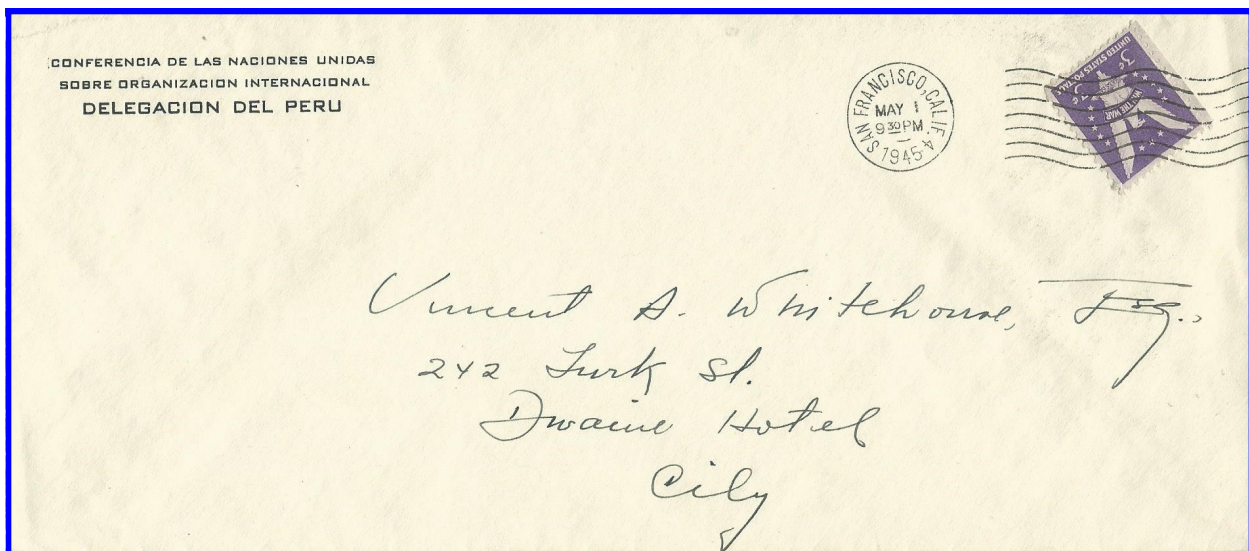 CONFERENCIA DE LAS NACIONES UNIDAS
SOBRE ORGANIZACION INTERNACIONAL
DELEGACION DEL PERU
SAN FRANCISCO, CALIF. 4
MAY 1
9 30 PM
1945
UNITED STATES POSTAGE
3¢
WIN THE WAR
3¢
Vincent A. Whitehouse, Esq.,
242 Turk St.
Dwaine Hotel
City